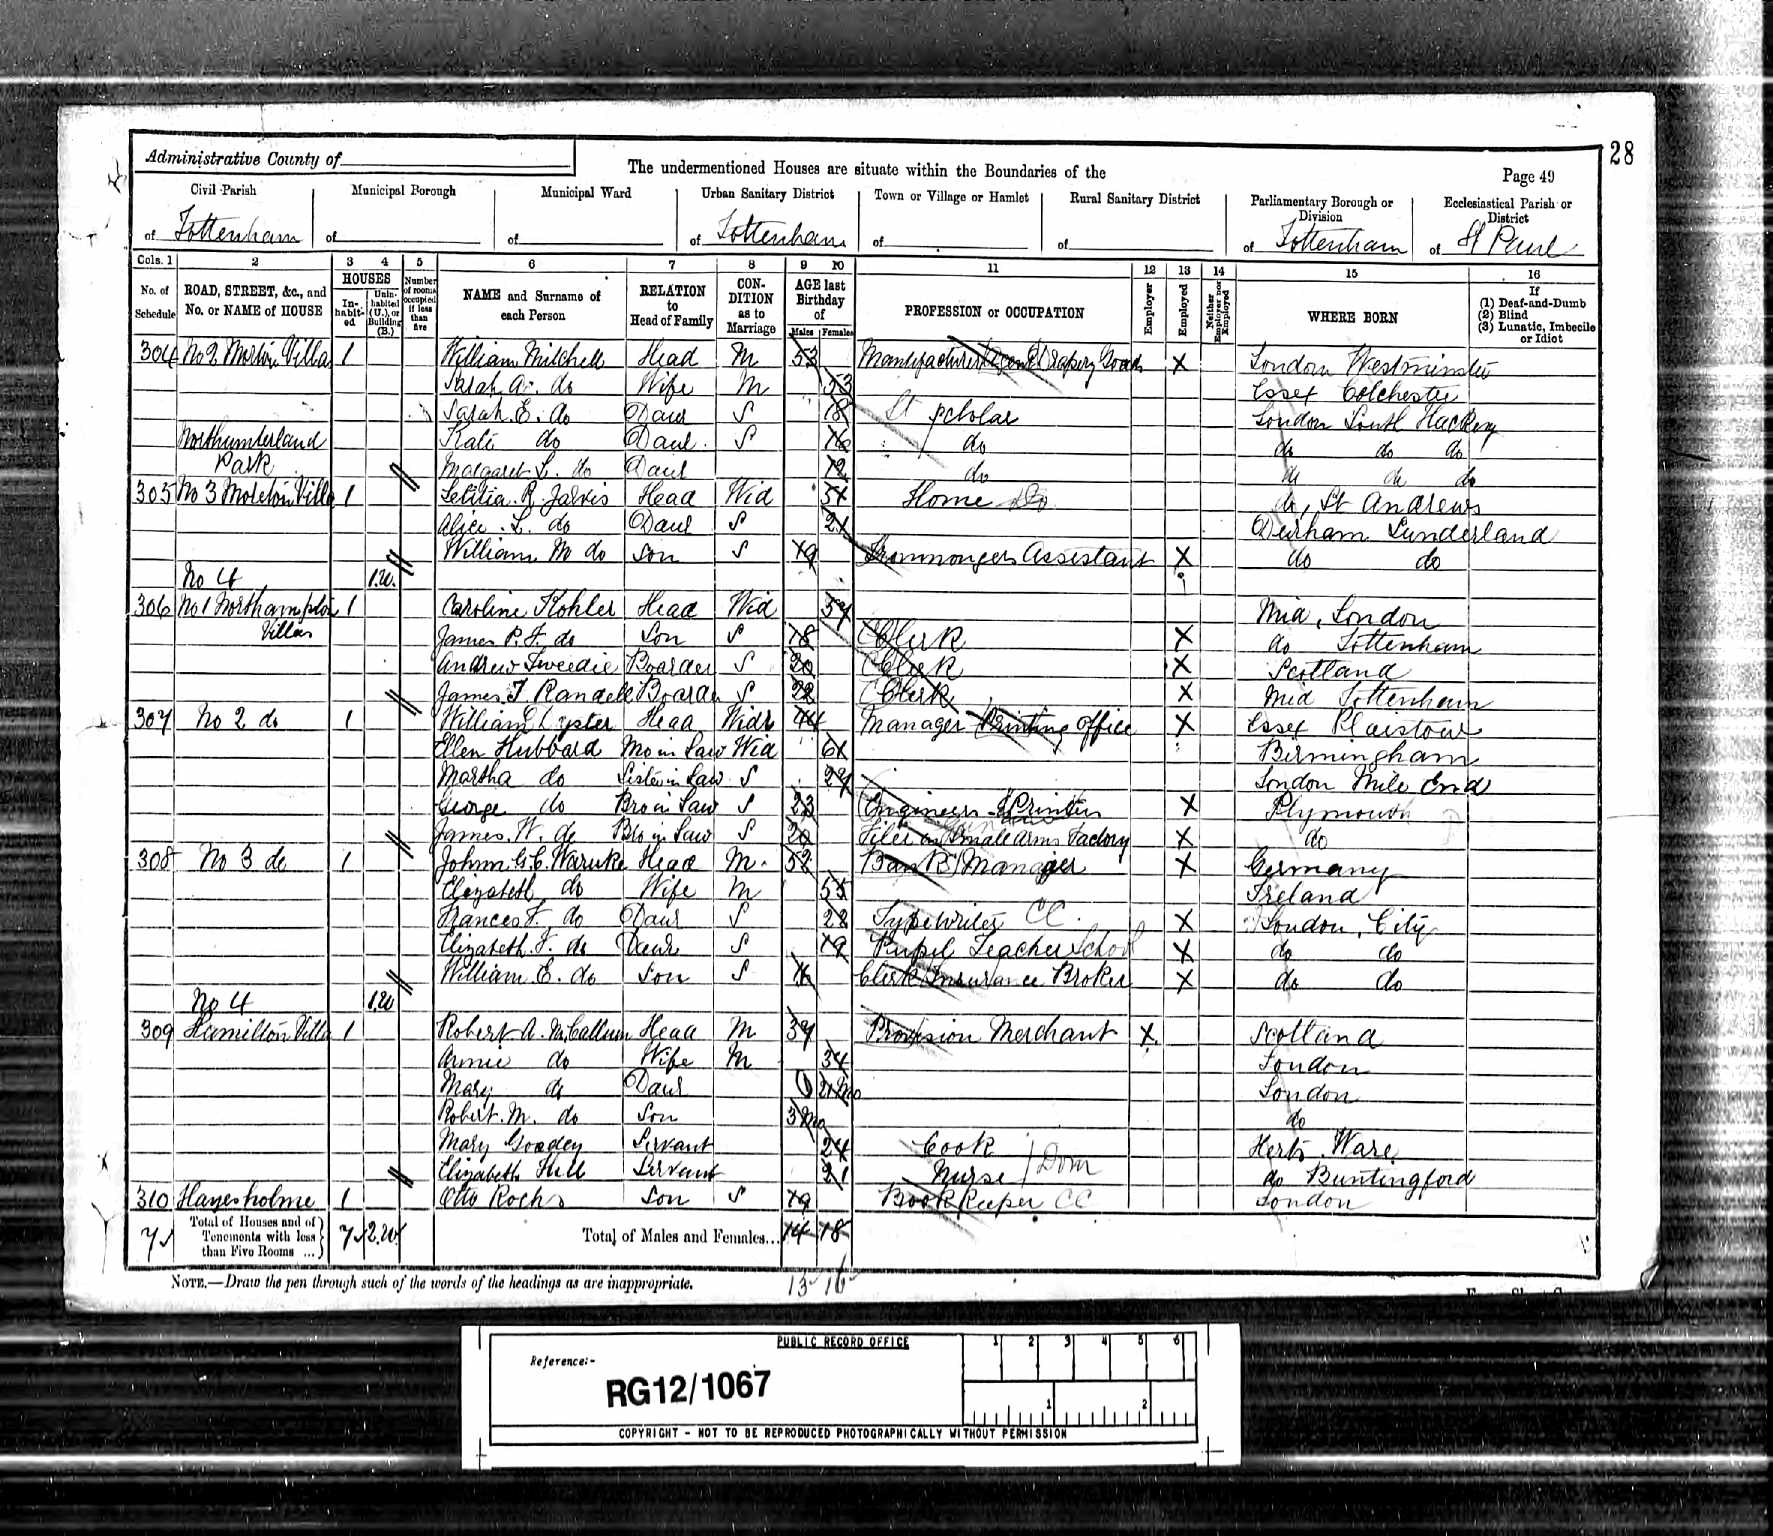 28
Administrative County of
The undermentioned Houses are situate within the Boundaries of the
Page 49
Civil Parish of Tottenham
Municipal Borough of
Municipal Ward of
Urban Sanitary District of Tottenham
Town or Village or Hamlet of
Rural Sanitary District of
Parliamentary Borough or Division of Tottenham
Ecclesiastical Parish or District of St Paul
Cols. 1 2 3 4 5 6 7 8 9 10 11 12 13 14 15 16
No. of Schedule
ROAD, STREET, &c., and No. or NAME of HOUSE
HOUSES
In-habit-ed
Unin-habited (U.), or Building (B.)
Number of rooms occupied if less than five
NAME and Surname of each Person
RELATION to Head of Family
CON-DITION as to Marriage
AGE last Birthday of
Males Females
PROFESSION or OCCUPATION
Employer
Employed
Neither Employer nor Employed
WHERE BORN
If (1) Deaf-and-Dumb (2) Blind (3) Lunatic, Imbecile or Idiot
304 No 2 Villas 1 William Mitchell Head M 53 Manufacturers Agent Drapery Goods X London Westminster
Sarah A. do Wife M 53 Essex Colchester
Sarah E. do Daur S 18 Scholar London South Hackney
Northumberland Kate do Daur S 16 do do do do
Park Margaret L. do Daur 12 do do do do
305 No 3 Moreton Villa 1 Letitia R. Jarvis Head Wid 54 Home do, St Andrews
Alice L. do Daur S 21 Durham Sunderland
William M do Son S 19 Ironmongers Assistant X do do
No 4 1.U.
306 No 1 Northampton 1 Caroline Kohler Head Wid Mid, London
Villas James P. F. do Son S 18 Clerk X do Tottenham
Andrew Tweedie Boarder S 20 Clerk X Scotland
James T Randell Boarder S 22 Clerk X Mid Tottenham
307 No 2 do 1 William Lyster Head Widr 44 Manager Printing Office X Essex Plaistow
Ellen Hubbard Mo in Law Wid Birmingham
Martha do Sister in Law S London Mile End
George do Bro in Law S 23 Engineers X Plymouth
James. W. do Bro in Law S 20 Small Arms Factory X do
308 No 3 do 1 Head M 52 Bank Manager X Germany
Elizabeth do Wife M 55 Ireland
Frances F. do Daur S 22 Typewriter CC X London, City
Elizabeth. F. do Daur S 19 Pupil Teacher School X do do
William E. do Son S Clerk Insurance Broker X do do
No 4 1.U
309 Hamilton Villa 1 Robert A. McCallum Head M Provision Merchant X Scotland
Annie do Wife M 34 London
Mary do Daur London
Robert. M. do Son 3 Mo do
Mary Servant 24 Cook Herts Ware
Elizabeth Hill Servant 21 Nurse Dom do Buntingford
310 Hayesholme 1 Otto Son S 19 Book Keeper CC London
7 Total of Houses and of Tenements with less than Five Rooms ... 7 2.U. Total of Males and Females... 14 18
NOTE.—Draw the pen through such of the words of the headings as are inappropriate. 13 16
PUBLIC RECORD OFFICE
1 2 3 4 5 6
Reference:-
RG12/1067
1 2
COPYRIGHT - NOT TO BE REPRODUCED PHOTOGRAPHICALLY WITHOUT PERMISSION